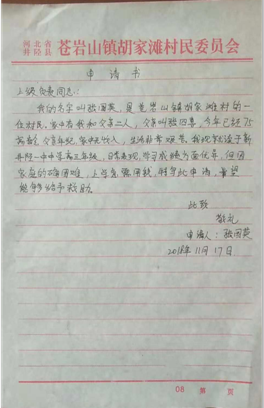 河北省
井陉县 苍岩山镇胡家滩村民委员会
申请书
上级负责同志：
我的名字叫殷国英，是苍岩山镇胡家滩村的一
位村民，家中有我和父亲二人，父亲叫殷，今年已经75
高龄，父亲年纪，家中无收入，生活非常困苦。我现就读于新
井陉一中中学高三年级，日常表现，学习成绩方面优异，但因
家庭的确困难，上学危，特写此申请，希望
能够给予救助。
此致
敬礼
申请人：殷国英
2018年11月17日
08 第 页